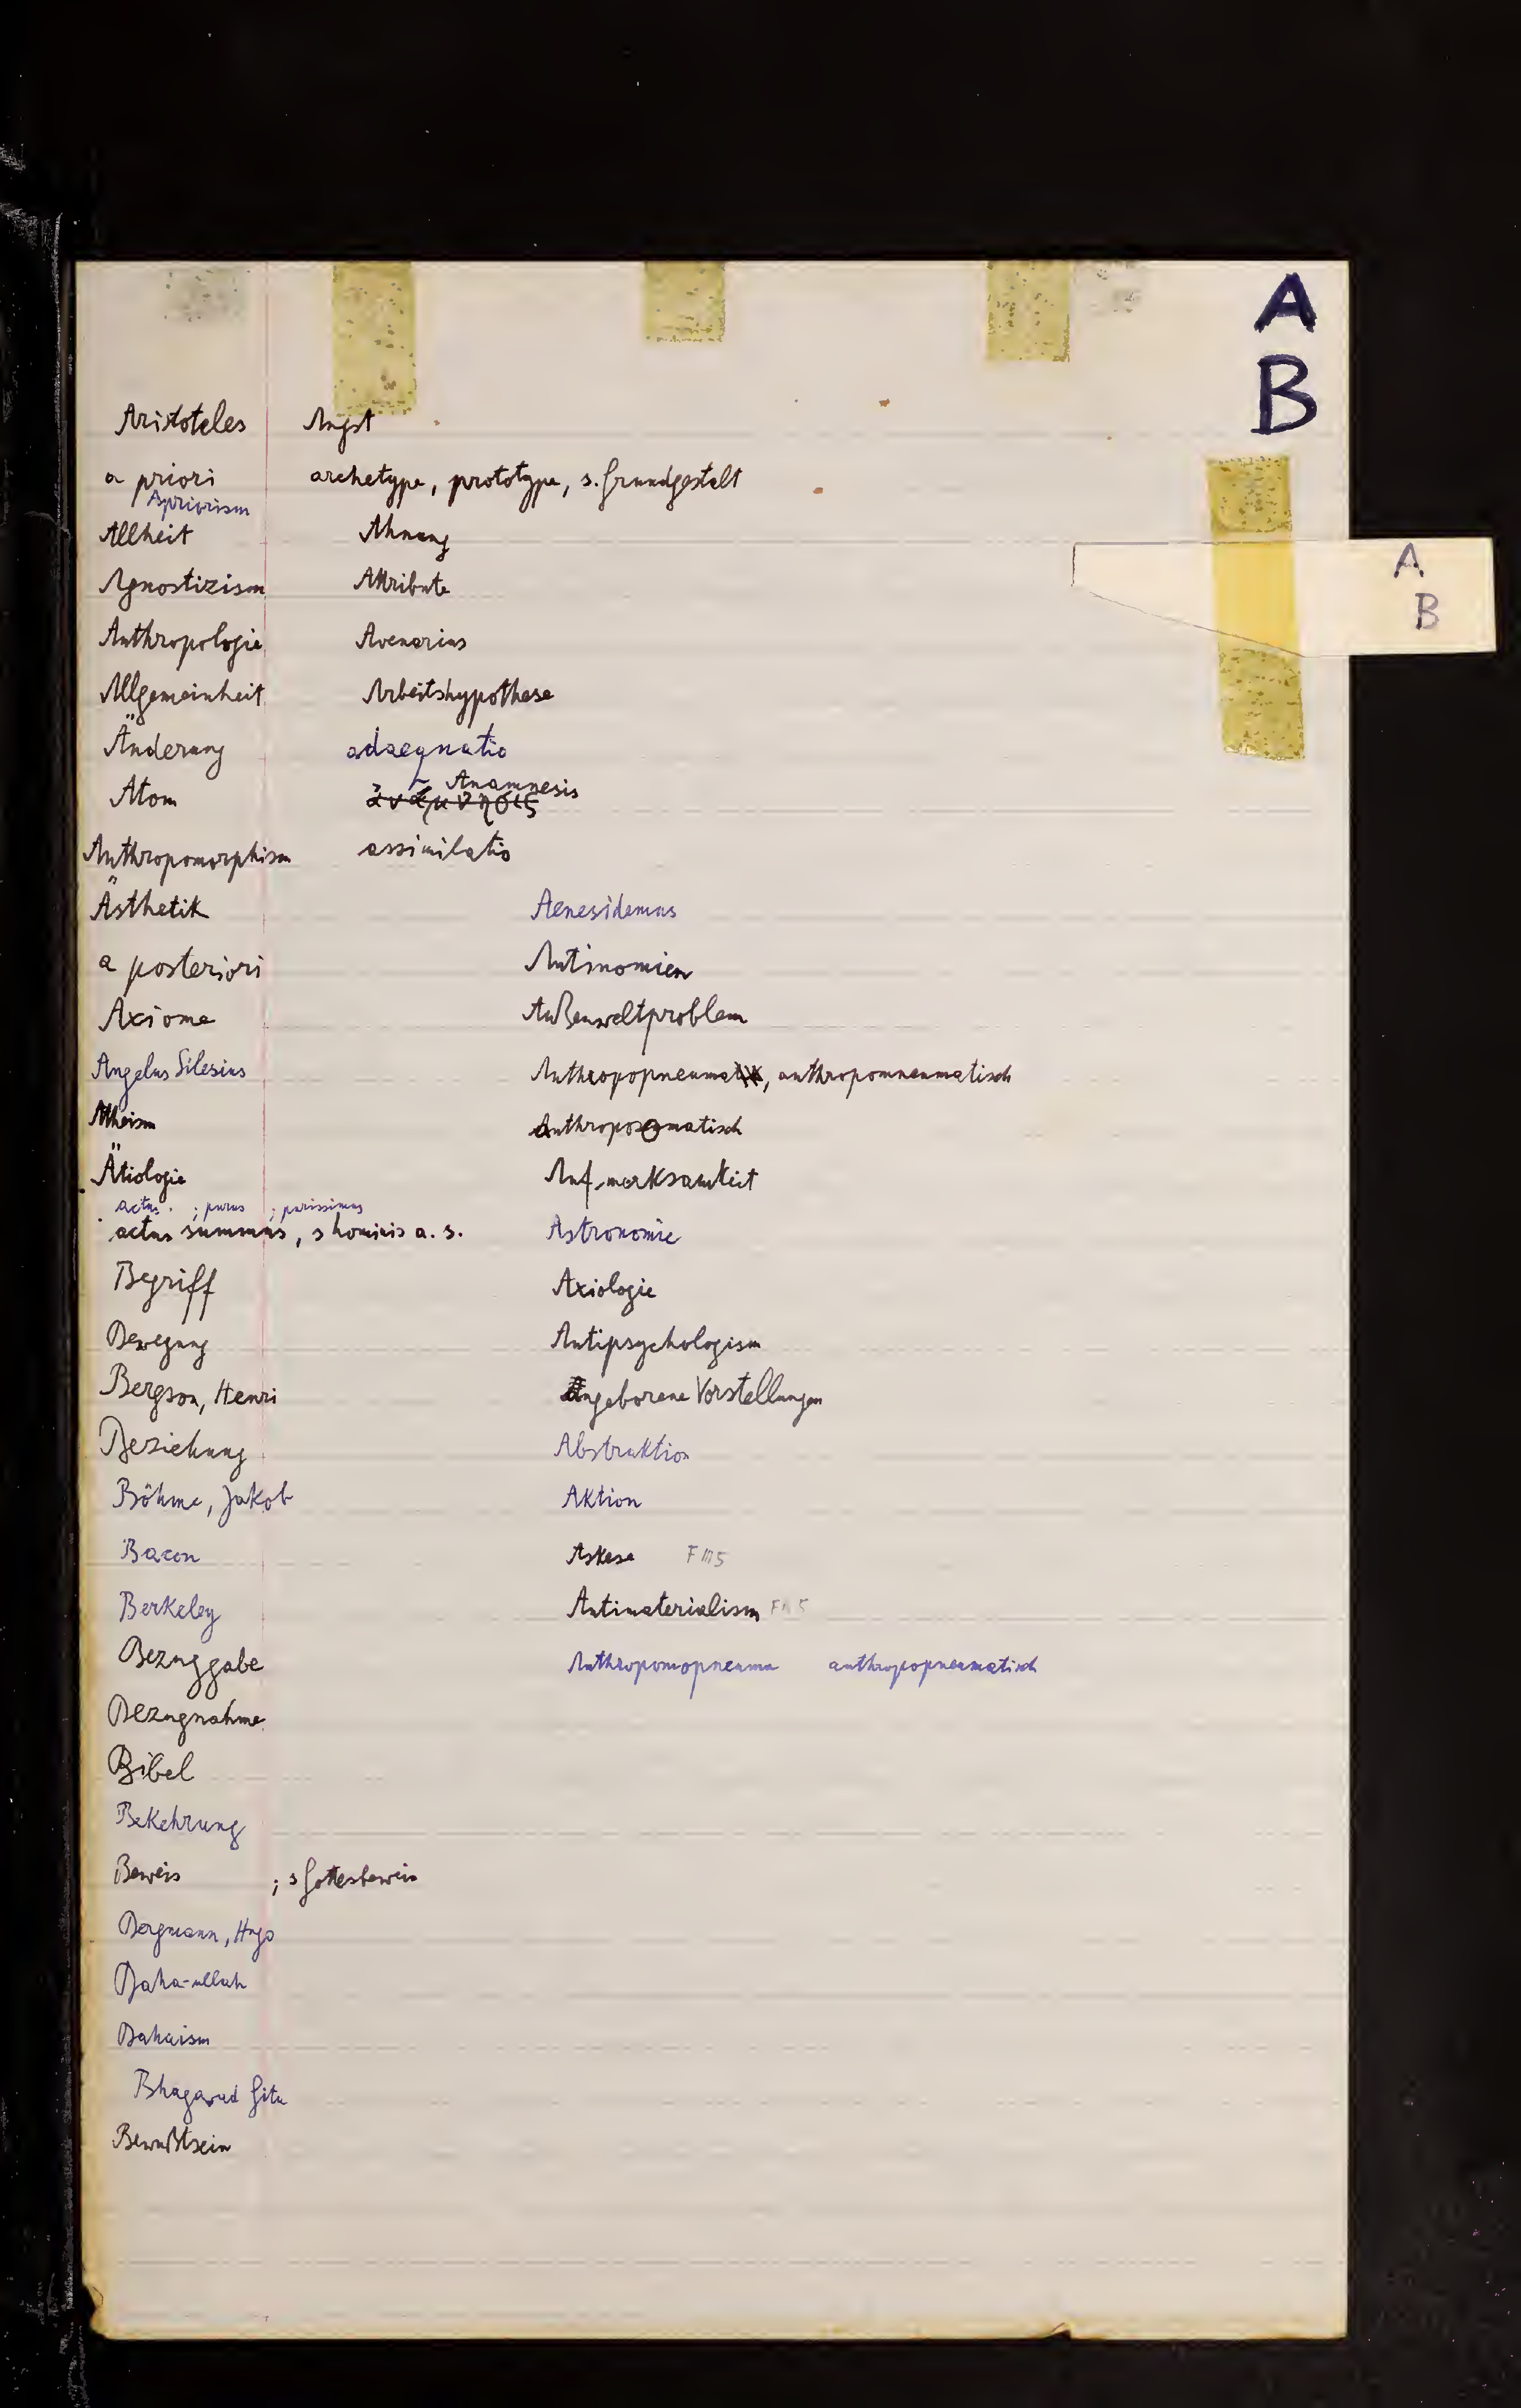 A
B
Aristoteles Angst
a priori archetype, prototype, s. Grundgestalt
Apriorism
Allheit Ahnung
A
B
Agnostizism Attribute
Anthropologie Avenarius
Allgemeinheit Arbeitshypothese
Änderung adaequatio
Anamnesis
Atom ἀνάμνησις
Anthropomorphism assimilatio
Ästhetik Aenesidemus
a posteriori Antinomien
Axiome Außenweltproblem
Angelus Silesius Anthropopneumatik, anthropomneumatisch
Atheism anthroposomatisch
Ätiologie Aufmerksamkeit
actus ; purus ; purissimus
actus summus, s hominis a. s. Astronomie
Begriff Axiologie
Bewegung Antipsychologism
Bergson, Henri Angeborene Vorstellungen
Beziehung Abstraktion
Böhme, Jakob Aktion
Bacon Askese F III 5
Berkeley Antimaterialism
Bezuggabe Anthropomopneuma anthropopneumatisch
Bezugnahme
Bibel
Bekehrung
Beweis ; s Gottesbeweis
Bergmann, Hugo
Baha-ullah
Bahaism
Bhagavad Gita
Bewußtsein